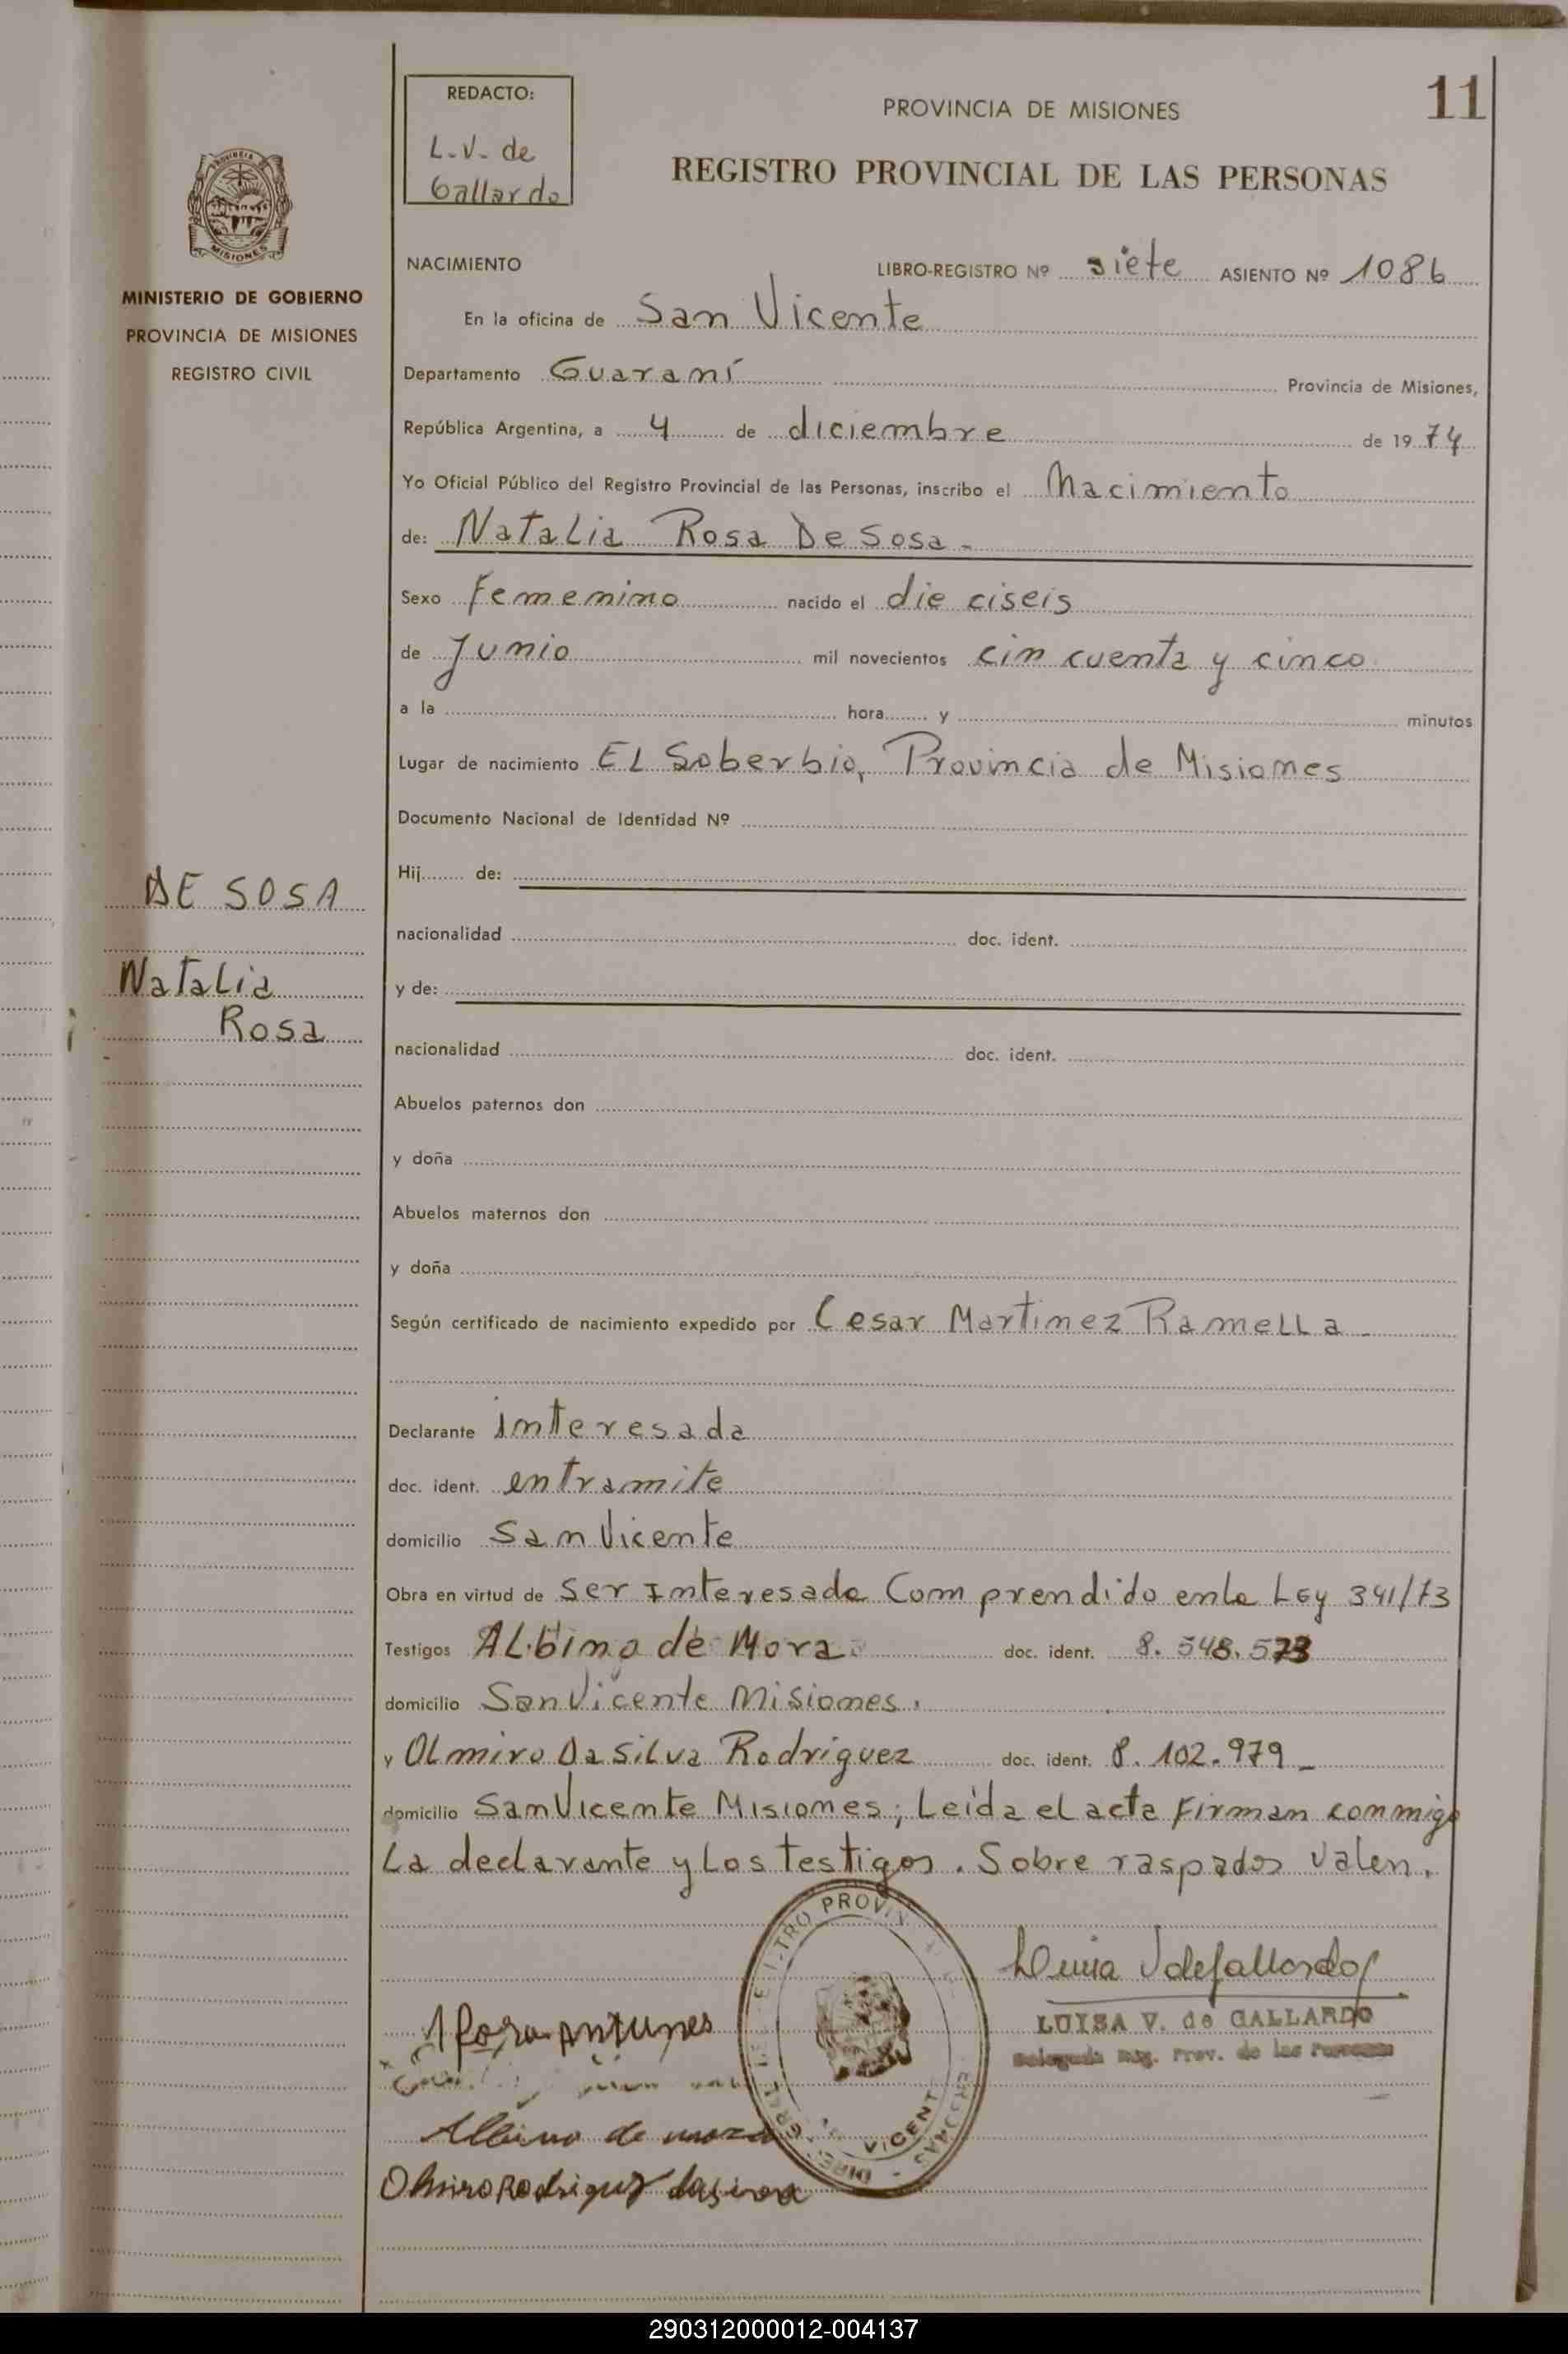 11
REDACTO:
L.V. de
Gallardo
PROVINCIA DE MISIONES
REGISTRO PROVINCIAL DE LAS PERSONAS
PROVINCIA DE
MISIONES
MINISTERIO DE GOBIERNO
PROVINCIA DE MISIONES
REGISTRO CIVIL
NACIMIENTO LIBRO-REGISTRO Nº siete ASIENTO Nº 1086
En la oficina de San Vicente
Departamento Guaraní Provincia de Misiones,
República Argentina, a 4 de diciembre de 19 74
Yo Oficial Público del Registro Provincial de las Personas, inscribo el Nacimiento
de: Natalia Rosa De Sosa -
Sexo femenino nacido el die ciseis
de Junio mil novecientos cin cuenta y cinco
a la hora y minutos
Lugar de nacimiento EL Soberbio, Provincia de Misiones
Documento Nacional de Identidad Nº
Hij de:
nacionalidad doc. ident.
y de:
nacionalidad doc. ident.
Abuelos paternos don
y doña
Abuelos maternos don
y doña
DE SOSA
Natalia
Rosa
Según certificado de nacimiento expedido por Cesar Martinez Ramella -
Declarante interesada
doc. ident. entramite
domicilio San Vicente
Obra en virtud de ser Interesada Com prendido enla Ley 341/73
Testigos ALbino de Mora doc. ident. 8. 548. 573
domicilio San Vicente Misiones.
y OLmiro Da Silva Rodriguez doc. ident. 8. 102. 979 -
domicilio San Vicente Misiones; Leida el acta Firman conmigo
La declarante y Los testigos. Sobre raspados valen.
LUISA V. de GALLARDO
Delegada Reg. Prov. de las Personas
Rosa Antunes
Albino de mora
Olmiro Rodriguez dasilva
VICENT
290312000012-004137